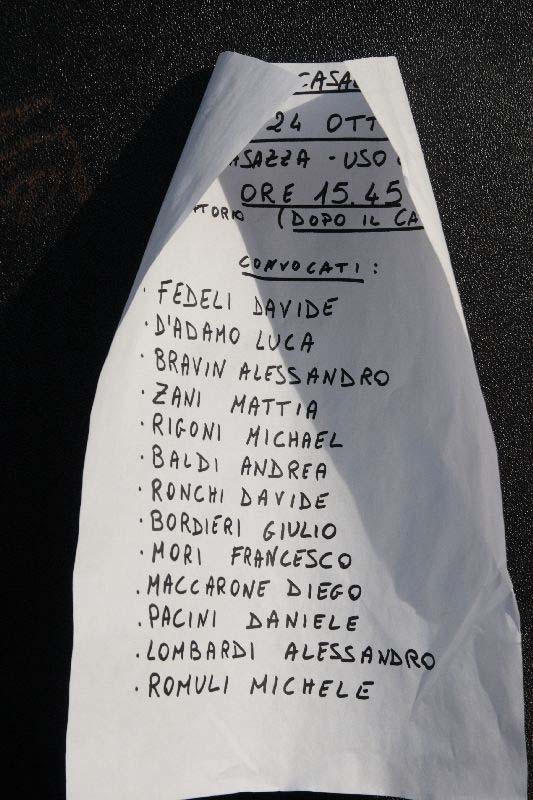 CASA
24 OTT
ASAZZA - USO
ORE 15.45
TTORIO (DOPO IL CA
CONVOCATI:
· FEDELI DAVIDE
· D'ADAMO LUCA
· BRAVIN ALESSANDRO
· ZANI MATTIA
· RIGONI MICHAEL
· BALDI ANDREA
· RONCHI DAVIDE
· BORDIERI GIULIO
· MORI FRANCESCO
. MACCARONE DIEGO
. PACINI DANIELE
. LOMBARDI ALESSANDRO
· ROMULI MICHELE